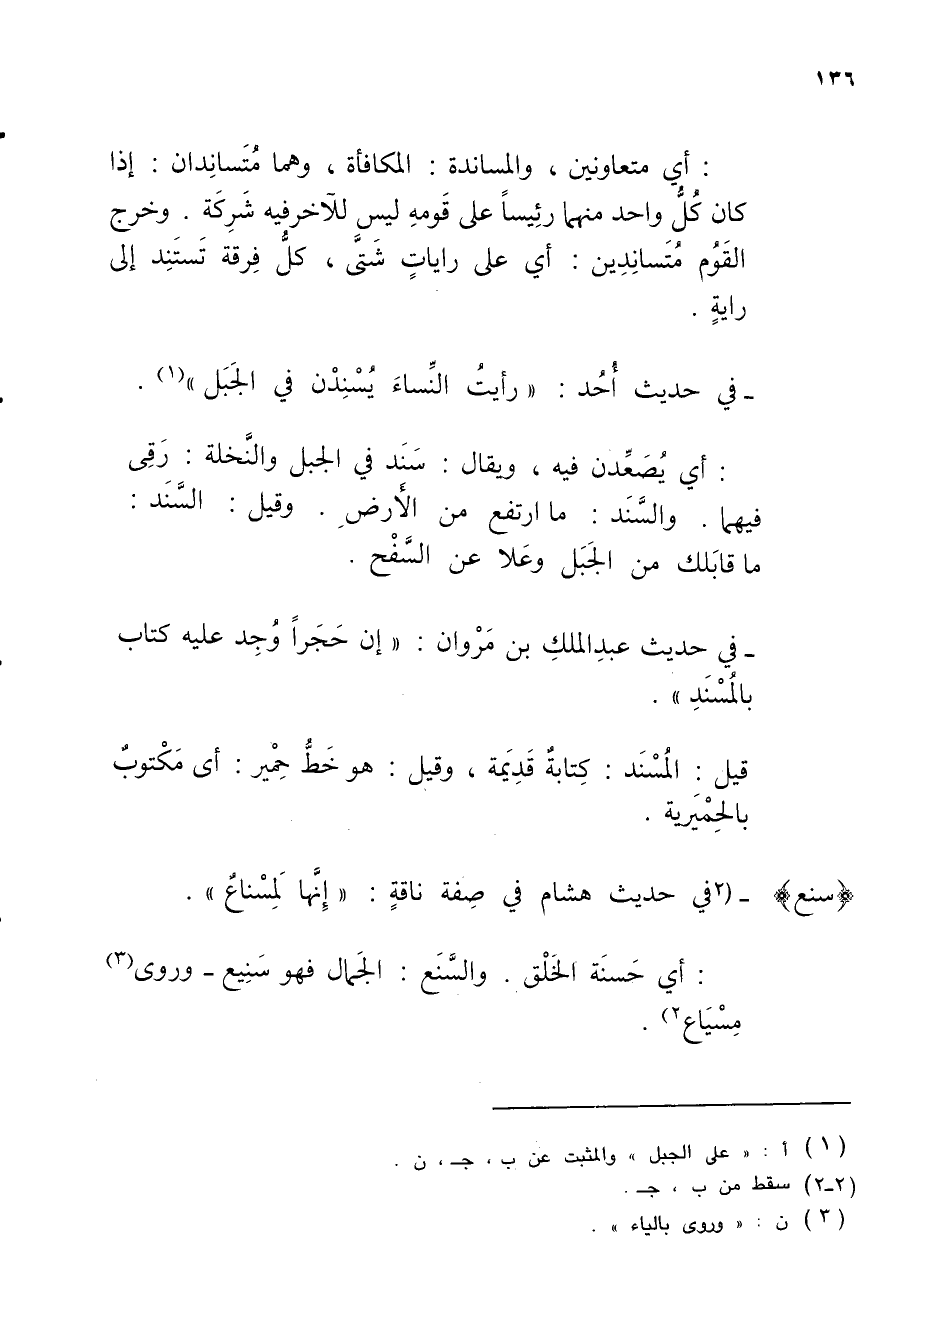 ١٣٦
: أي متعاونين ، والمساندة : المكافأة ، وهما مُتَسانِدان : إذا
كان كُلُّ واحد منهما رئِيساً على قَومهِ ليس للآخر فيه شَرِكَة . وخرج
القَوْم مُتَسانِدِين : أي على راياتٍ شَتَّى ، كلُّ فِرقة تَستَنِد إلى
رايةٍ .
ـ في حديث أُحُد : « رأيتُ النِّساءَ يُسْنِدْن في الجَبَل »(١) .
: أي يُصَعِّدن فيه ، ويقال : سَنَد في الجبل والنَّخلة : رَقِى
فيهما . والسَّنَد : ما ارتفع من الأَرض . وقيل : السَّنَد :
ما قابَلك من الجَبَل وعَلا عن السَّفْح .
ـ في حديث عبدِالملكِ بن مَرْوان : « إن حَجَراً وُجِد عليه كتاب
بالمُسْنَدِ » .
قيل : المُسْنَد : كِتابةٌ قَدِيَمة ، وقيل : هو خَطُّ حِمْير : أى مَكْتوبٌ
بالحِمْيَرية .
﴿سنع﴾ ـ (٢في حديث هشام في صِفة ناقةٍ : « إِنَّها لَمِسْناعٌ » .
: أي حَسنَة الخَلْق . والسَّنَع : الجَمال فهو سَنِيع ـ وروى(٣)
مِسْيَاع٢) .
(١) أ : « على الجبل » والمثبت عن ب ، جـ ، ن .
(٢ـ٢) سقط من ب ، جـ .
(٣) ن : « وروى بالياء » .